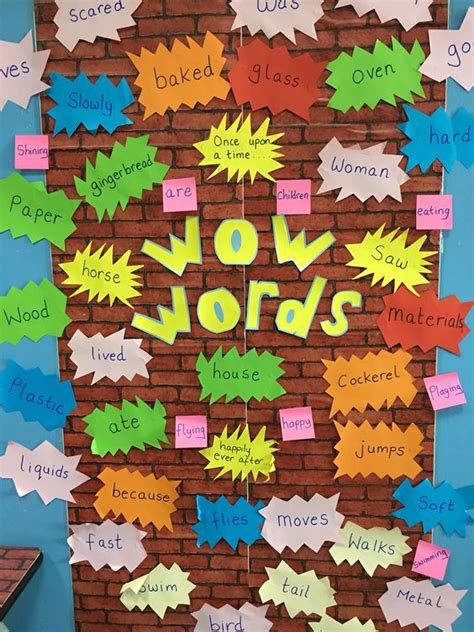 scared
was
ves
baked
glass
Oven
go
Slowly
hard
Once upon
a time....
Shining
gingerbread
Woman
are
Children
eating
Paper
wow
words
horse
Saw
Wood
materials
lived
house
Cockerel
Plastic
Playing
ate
flying
happy
happily
ever after
jumps
liquids
because
flies
moves
Soft
fast
Walks
Swimming
Swim
tail
Metal
bird